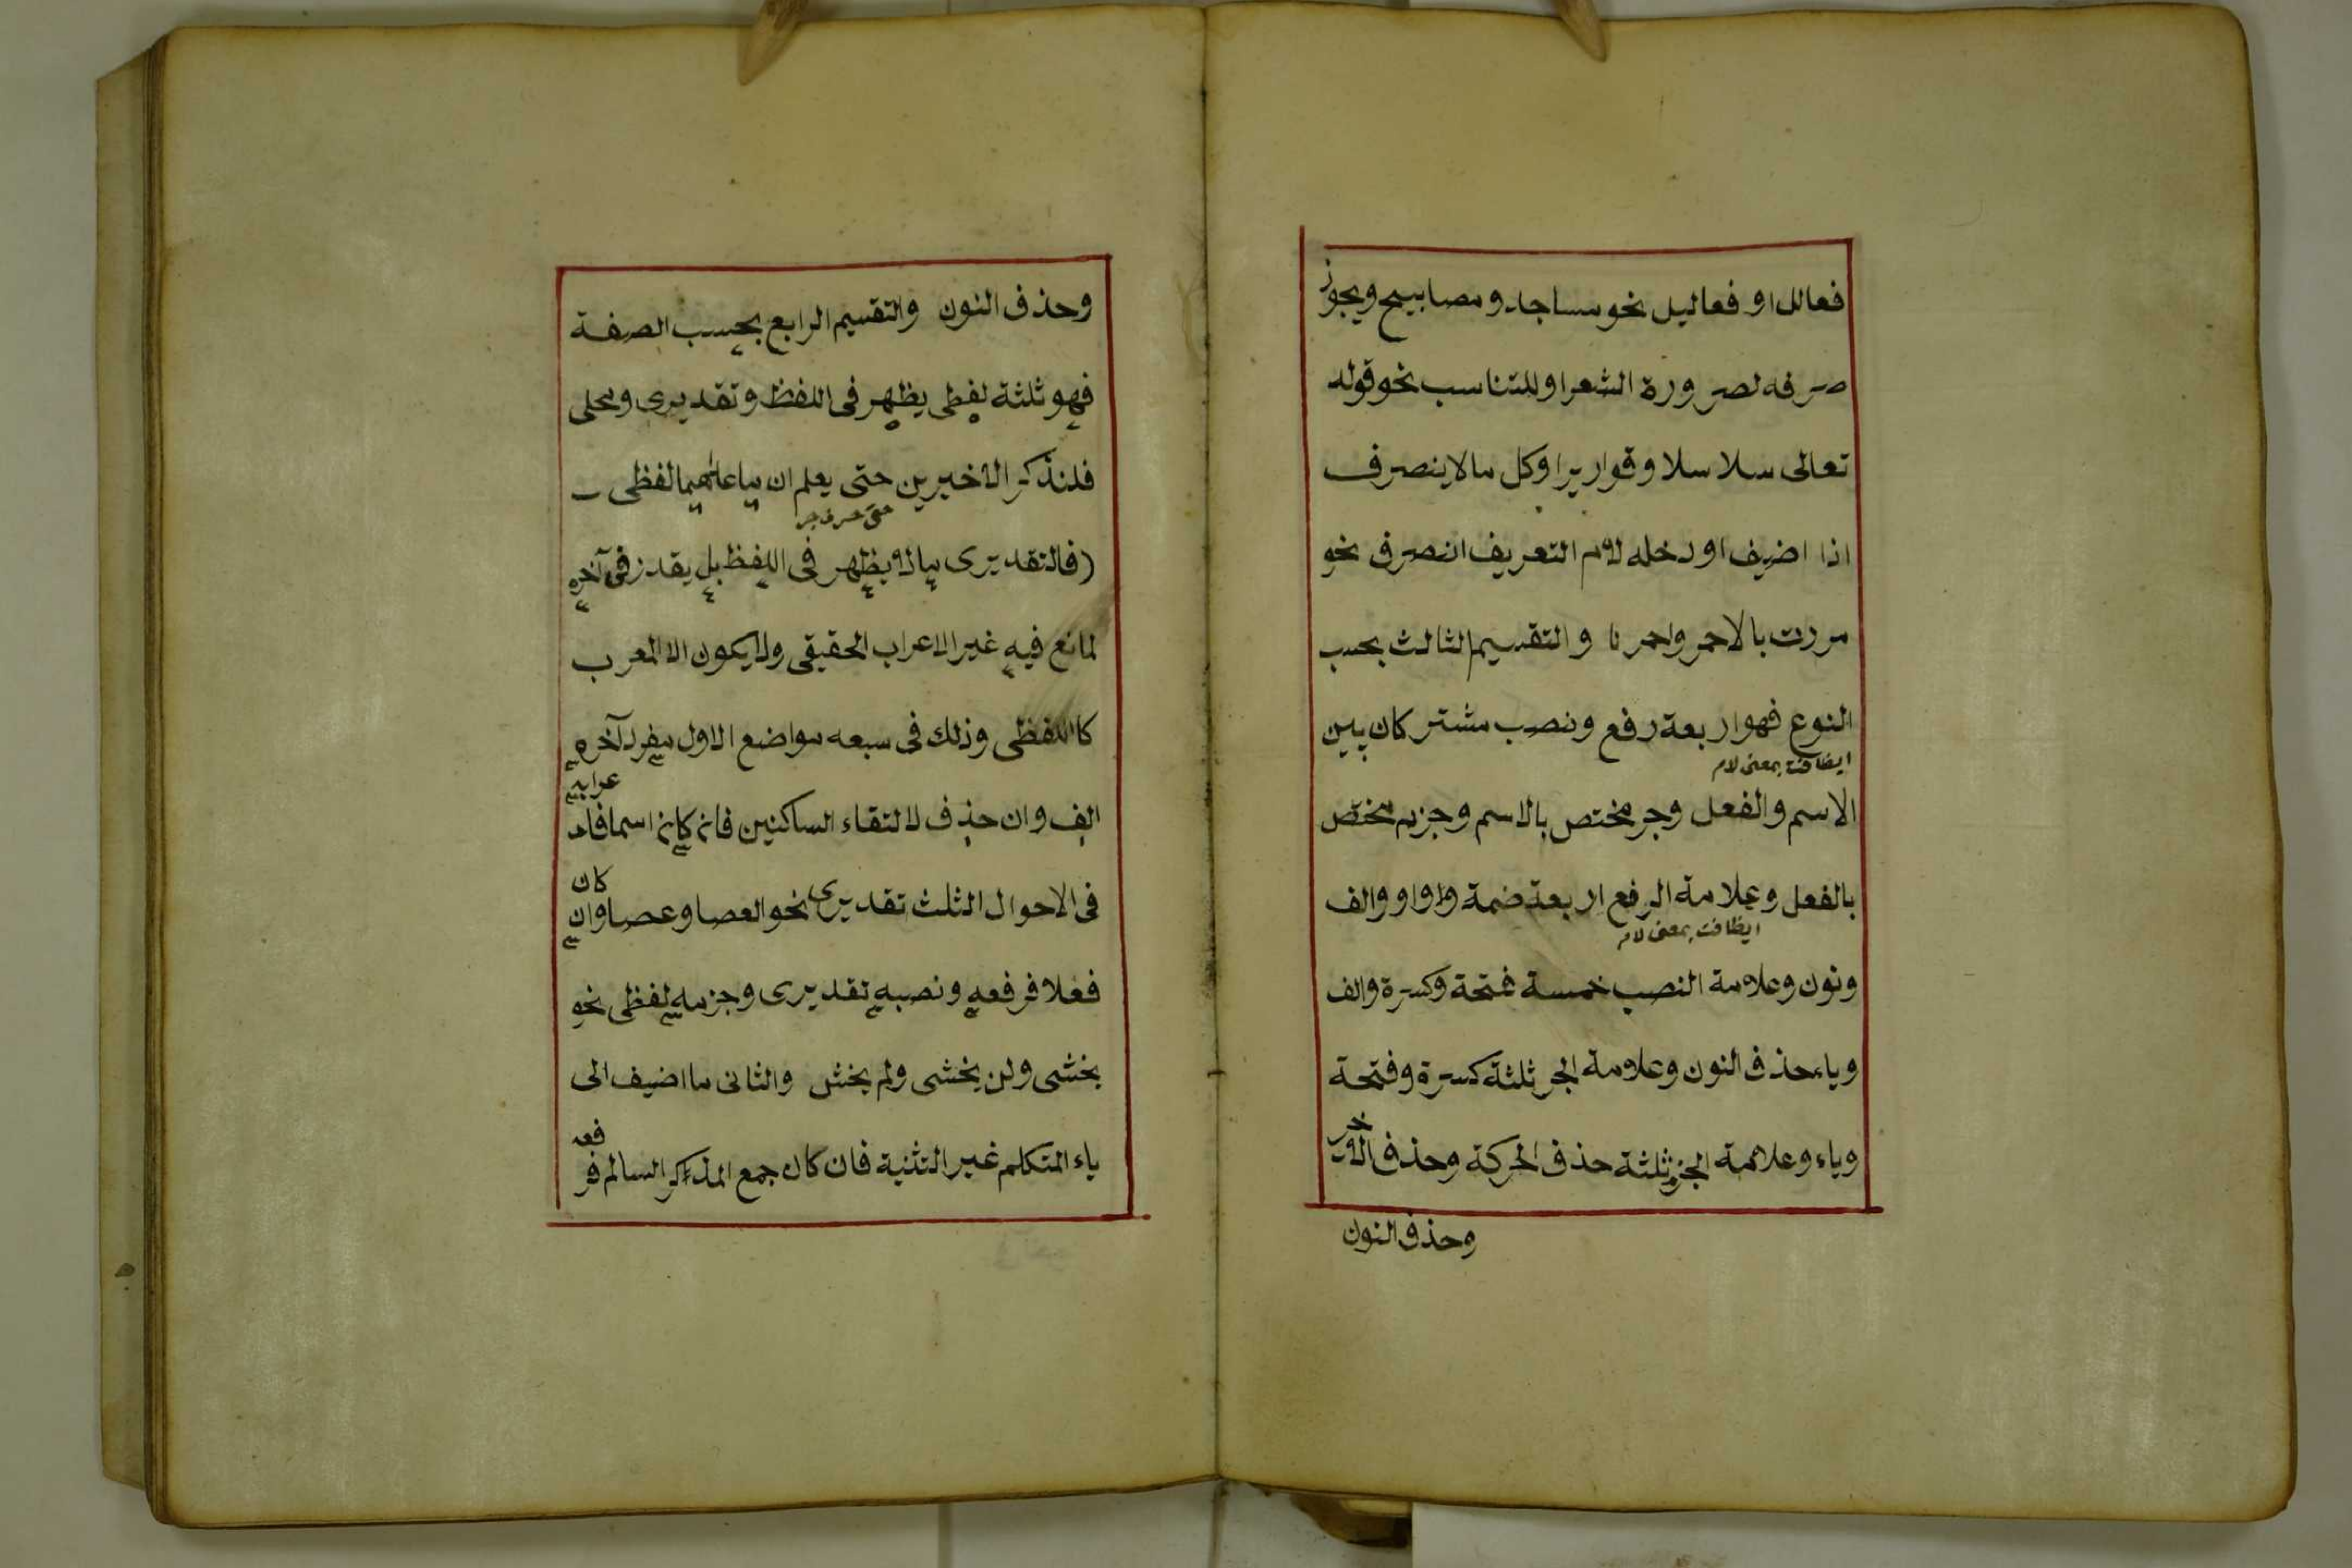 فعالل او فعاليل نحو مساجد و مصابيح ويجوز
صرفه لضرورة الشعر او للتناسب نحو قوله
تعالى سلاسلا وقواريرا وكل مالاينصرف
اذا اضيف او دخله لام التعريف انصرف نحو
مررت بالاحمر واحمرنا والتقسيم الثالث بحسب
النوع فهو اربعة رفع ونصب مشتركان بين
ايضافت بمعنى لام
الاسم والفعل وجر مختص بالاسم وجزم مختص
بالفعل وعلامة الرفع اربعة ضمة وواو والف
ايظافت بمعنى لام
ونون وعلامة النصب خمسة فتحة وكسرة والف
وياء حذف النون وعلامة الجر ثلثة كسرة وفتحة
وياء وعلامة الجزم ثلثة حذف الحركة وحذف الآخر
وحذف النون
وحذف النون والتقسيم الرابع بحسب الصفة
فهو ثلثة لفظى يظهر فى اللفظ وتقديرى ومحلى
فلنذكر الاخيرين حتى يعلم ان ما عليهما لفظى
حتى حرف جر
فالتقديرى مالا يظهر فى اللفظ بل يقدر فى آخره
لمانع فيه غير الاعراب الحقيقى ولا يكون الا المعرب
كاللفظى وذلك فى سبعه مواضع الاول مفرد آخره
الف وان حذف لالتقاء الساكنين فان كان اسما فا
عرابه
فى الاحوال الثلث تقديرى نحو العصا وعصا وان
كان
فعلا فرفعه ونصبه تقديرى وجزمه لفظى نحو
يخشى ولن يخشى ولم يخش والثانى ما اضيف الى
ياء المتكلم غير التثنية فان كان جمع المذكر السالم فر
فعه